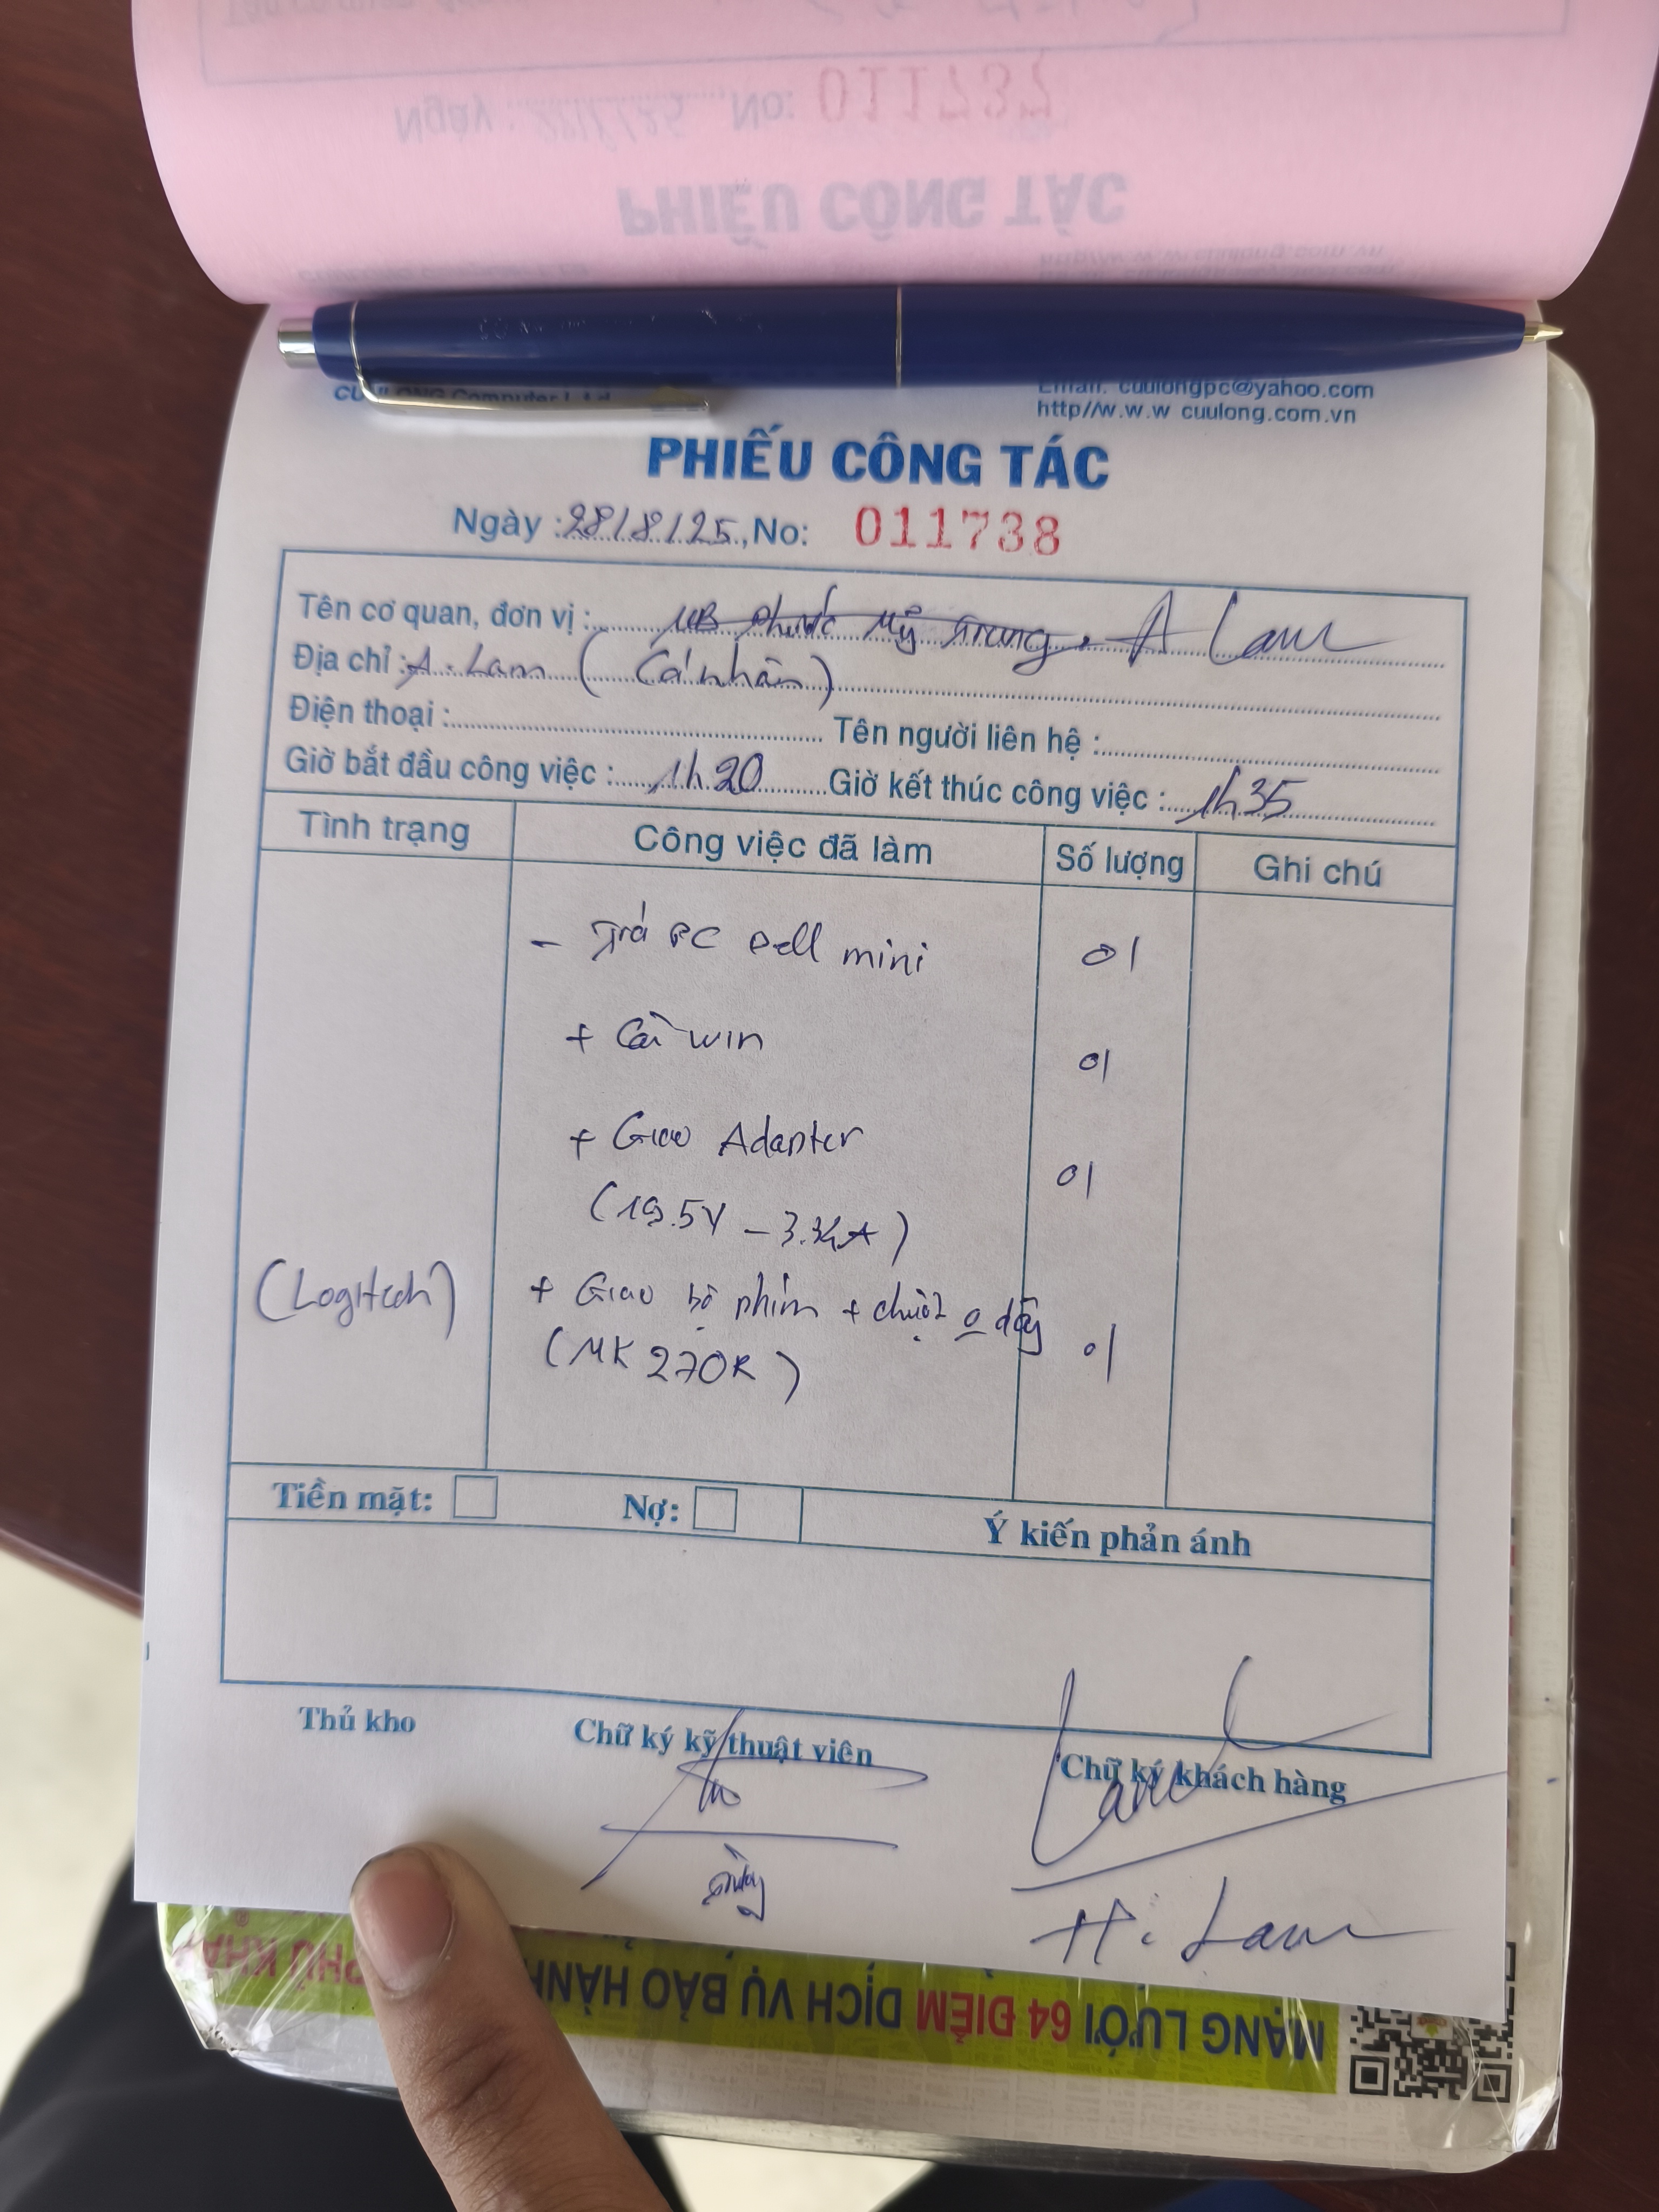 011737
PHIẾU CÔNG TÁC
CUULONG Computer
Email: cuulongpc@yahoo.com
http//w.w.w cuulong.com.vn
PHIẾU CÔNG TÁC
Ngày : 28/8/25, No: 011738
Tên cơ quan, đơn vị : UB Phước Mỹ Trung. A Lam
Địa chỉ : A. Lam (Cá nhân)
Điện thoại : Tên người liên hệ :
Giờ bắt đầu công việc : 1h20 Giờ kết thúc công việc : 1h35
Tình trạng Công việc đã làm Số lượng Ghi chú
- Trả PC Dell mini 01
+ Cài win 01
+ Giao Adapter 01
(19.5V - 3.34A)
(Logitech) + Giao bộ phím + chuột 0 dây 01
(MK 270R)
Tiền mặt: Nợ: Ý kiến phản ánh
Thủ kho Chữ ký kỹ thuật viên Chữ ký khách hàng
Lam
H. Lam
MẠNG LƯỚI 64 ĐIỂM DỊCH VỤ BẢO HÀNH